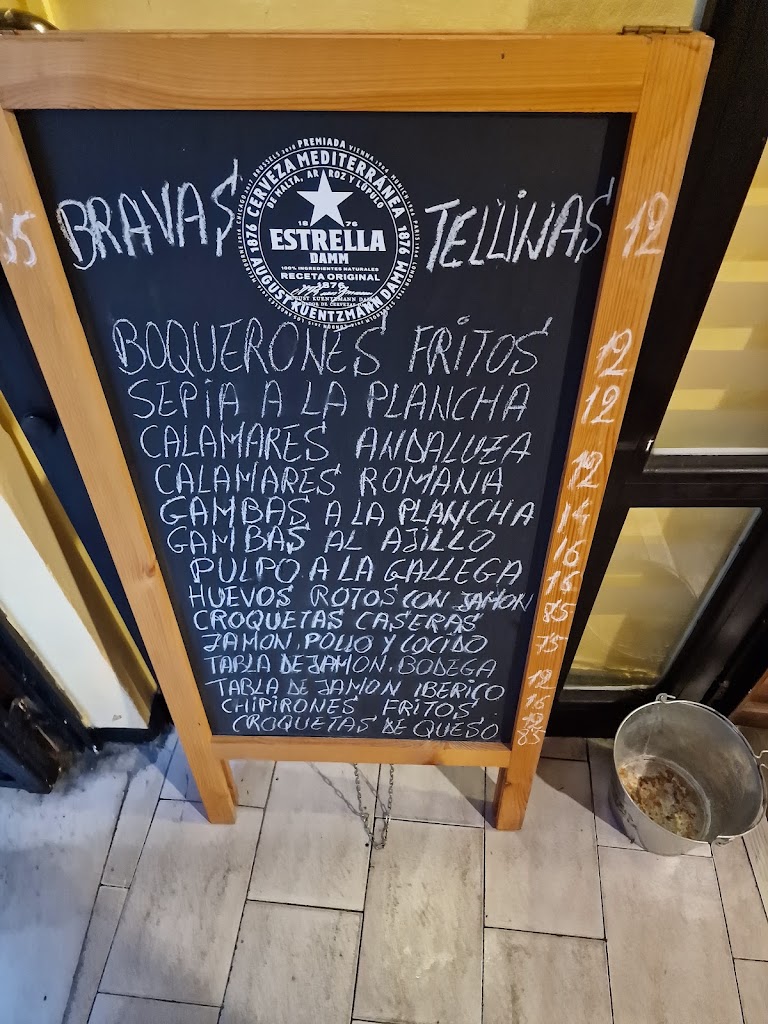 PREMIADA
CERVEZA MEDITERRÁNEA
DE MALTA, ARROZ Y LÚPULO
1876
ESTRELLA
DAMM
100% INGREDIENTES NATURALES
RECETA ORIGINAL
1876
AUGUST KUENTZMANN DAMM
1876 1876
AUGUST KUENTZMANN DAMM
55 BRAVAS TELLINAS 12
BOQUERONES FRITOS 12
SEPIA A LA PLANCHA 12
CALAMARES ANDALUZA 12
CALAMARES ROMANA 14
GAMBAS A LA PLANCHA 16
GAMBAS AL AJILLO 16
PULPO A LA GALLEGA
HUEVOS ROTOS CON JAMON 85
CROQUETAS CASERAS 75
JAMON, POLLO Y COCIDO
TABLA DE JAMON BODEGA 12
TABLA DE JAMON IBERICO 16
CHIPIRONES FRITOS 12
CROQUETAS DE QUESO 85